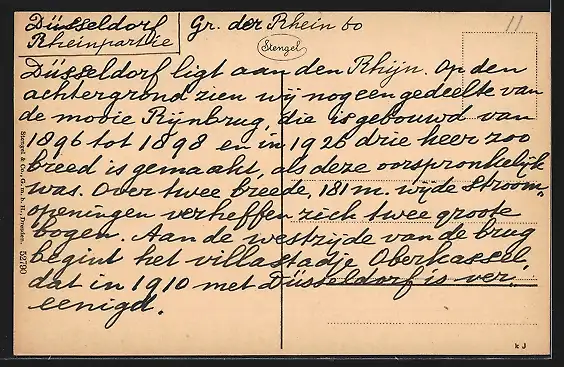 Düsseldorf
Rheinpartie
Gr. der Rhein 60
11
Stengel
Düsseldorf ligt aan den Rhijn. Op den
achtergrond zien wij nog een gedeelte van
de mooie Rijnbrug, die is gebouwd van
1896 tot 1898 en in 1926 drie heer zoo
breed is gemaakt, als deze oorspronkelijk
was. Over twee breede, 181 m. wijde stroom-
openingen verheffen zich twee groote
bogen. Aan de westzijde van de brug
begint het villastadje Oberkassel,
dat in 1910 met Düsseldorf is ver-
eenigd.
Stengel & Co., G. m. b. H., Dresden. 52790
k J